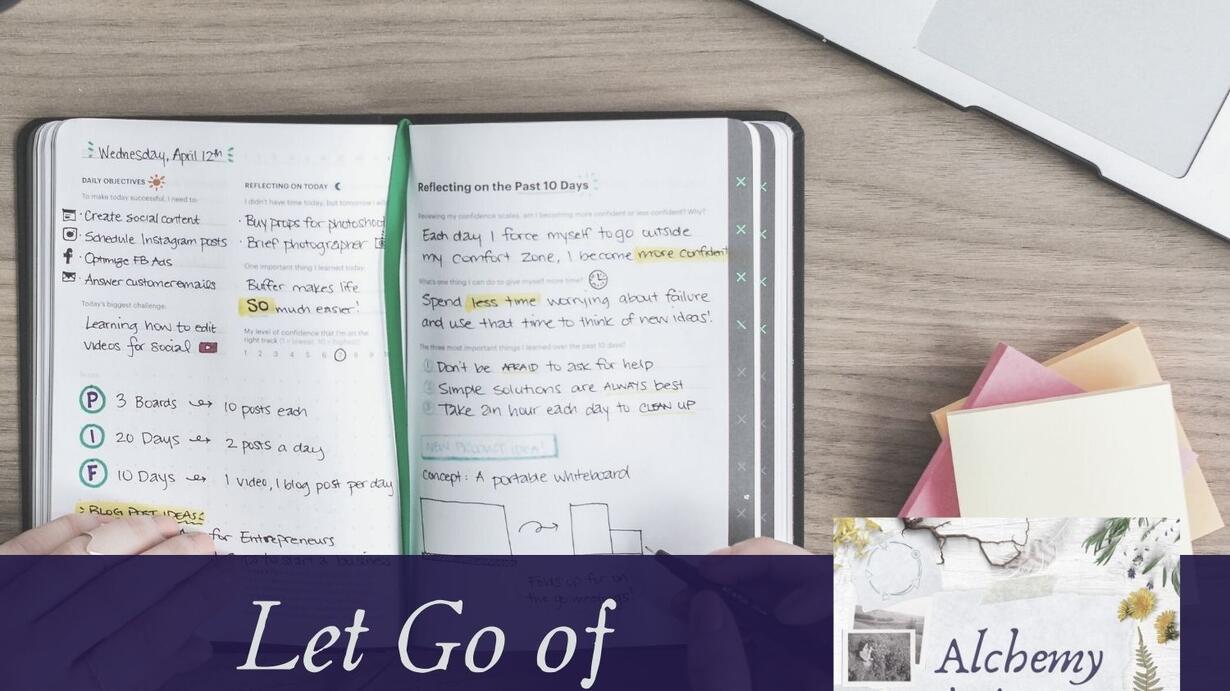 Wednesday, April 12th
DAILY OBJECTIVES
To make today successful, I need to:
Create social content
Schedule Instagram posts
Optimize FB Ads
Answer customer emails
Today's biggest challenge:
Learning how to edit
videos for social
REFLECTING ON TODAY
I didn't have time today, but tomorrow I will
Buy props for photoshoot
Brief photographer
One important thing I learned today:
Buffer makes life
SO much easier!
My level of confidence that I'm on the
right track (1 = lowest, 10 = highest):
1 2 3 4 5 6 7 8 9
P 3 Boards → 10 posts each
I 20 Days → 2 posts a day
F 10 Days → 1 video, 1 blog post per day
BLOG POST IDEAS
for Entrepreneurs
to start a business
Reflecting on the Past 10 Days
Reviewing my confidence scales, am I becoming more confident or less confident? Why?
Each day I force myself to go outside
my comfort zone, I become more confident
What's one thing I can do to give myself more time?
Spend less time worrying about failure
and use that time to think of new ideas!
The three most important things I learned over the past 10 days?
1 Don't be AFRAID to ask for help
2 Simple solutions are ALWAYS best
3 Take an hour each day to CLEAN UP
NEW PRODUCT IDEA!
concept: A portable whiteboard
Folds up for on
the go meetings!
Let Go of
Alchemy